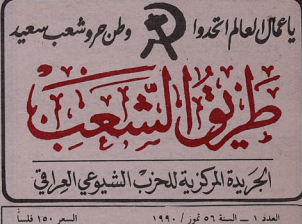 يا عمال العالم اتحدوا وطن حر وشعب سعيد
طريق الشعب
الجريدة المركزية للحزب الشيوعي العراقي
العدد ١ ــ السنة ٥٦ تموز / ١٩٩٠ السعر ١٥٠ فلساً